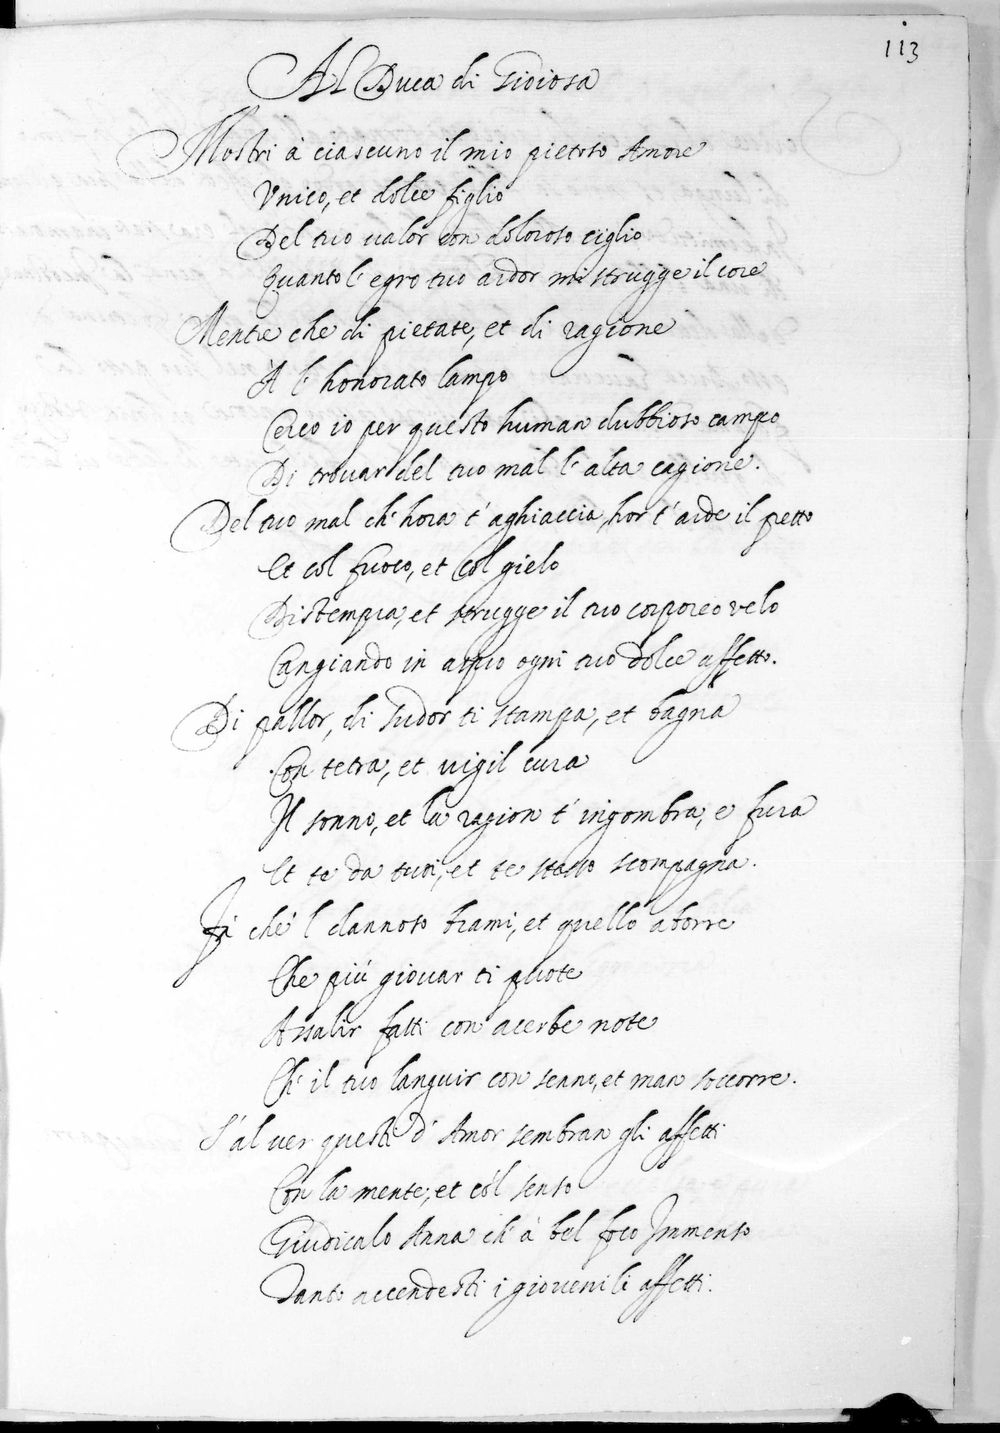 113
Al Duca di Gioiosa
Mostri à ciascuno il mio pietoso Amore
Vnico, et dolce figlio
Del tuo valor con doloroso ciglio
Quanto l'egro tuo ardor mi strugge il core
Mentre che di pietate, et di ragione
A l'honorato lampo
Cerco io per questo human dubbioso campo
Di trovar del tuo mal l'alta cagione.
Del tuo mal ch'hora t'aghiaccia, hor t'arde il petto
Et col fuoco, et col gielo
Distempra, et strugge il tuo corporeo velo
Cangiando in aspro ogni tuo dolce affetto.
Di pallor, di sudor ti stampa, et bagna
Con tetra, et vigil cura
Il sonno, et la ragion t'ingombra, e fura
Et te da tuoi, et te stesso scompagna.
Fà che'l dannoso brami, et quello aborre
Che più giouar ti puote
Assalir fatti con acerbe note
Ch'il tuo languir con senno, et man soccorre.
S'al uer questi d'Amor sembran gli affetti
Con la mente, et col senso
Giudicalo Anna ch'à bel foco Immenso
Tanto accendesti i giouenili affetti.